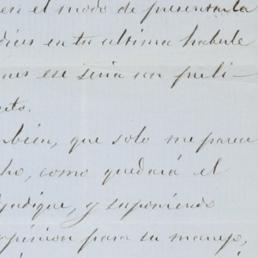 en el modo de presentarla
dices en tu ultima haberle
nes ese seria un preli-
to.
mbien, que solo me parece
ho, como quedará el
judique, y suponiendo
opinion para su manejo,